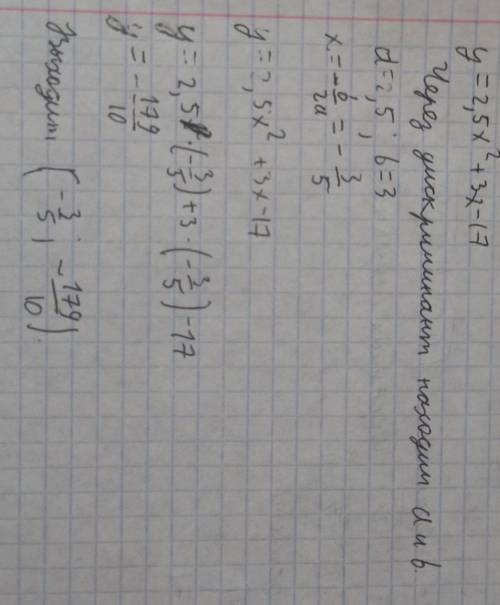 y = 2,5x² + 3x - 17
Через дискриминант находим d и b.
d = 2,5 ; b = 3
x = -b/2a = -3/5
y = 2,5x² + 3x - 17
y = 2,5 · (-3/5) + 3 · (-3/5) - 17
y = -179/10
Выходит (-3/5 ; -179/10).